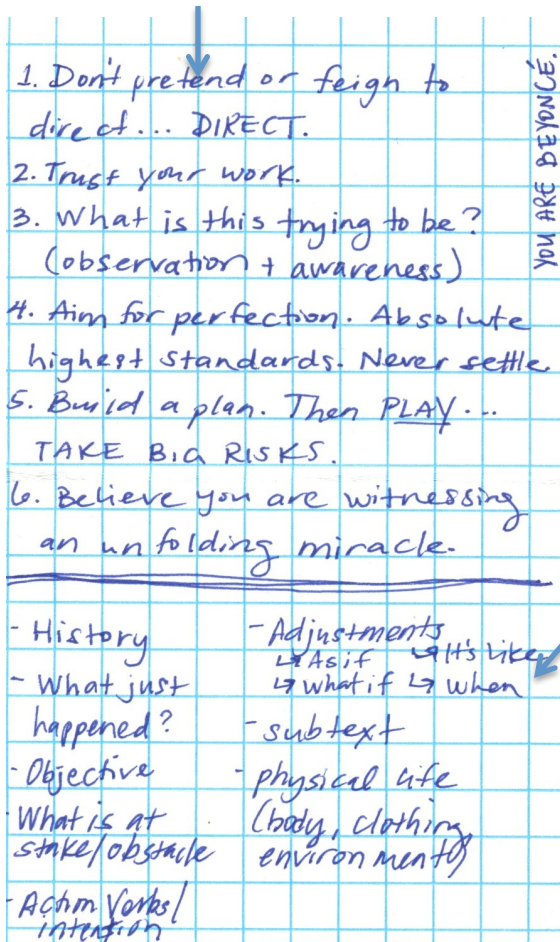 1. Don't pretend or feign to
direct... DIRECT.
2. Trust your work.
3. What is this trying to be?
(observation + awareness)
4. Aim for perfection. Absolute
highest standards. Never settle.
5. Build a plan. Then PLAY...
TAKE BIG RISKS.
6. Believe you are witnessing
an unfolding miracle.
YOU ARE BEYONCÉ.
- History
- What just
happened?
- Objective
- What is at
stake/obstacle
- Action Verbs/
intention
- Adjustments
↳ As if ↳ It's Like
↳ what if ↳ when
- subtext
- physical life
(body, clothing,
environment)